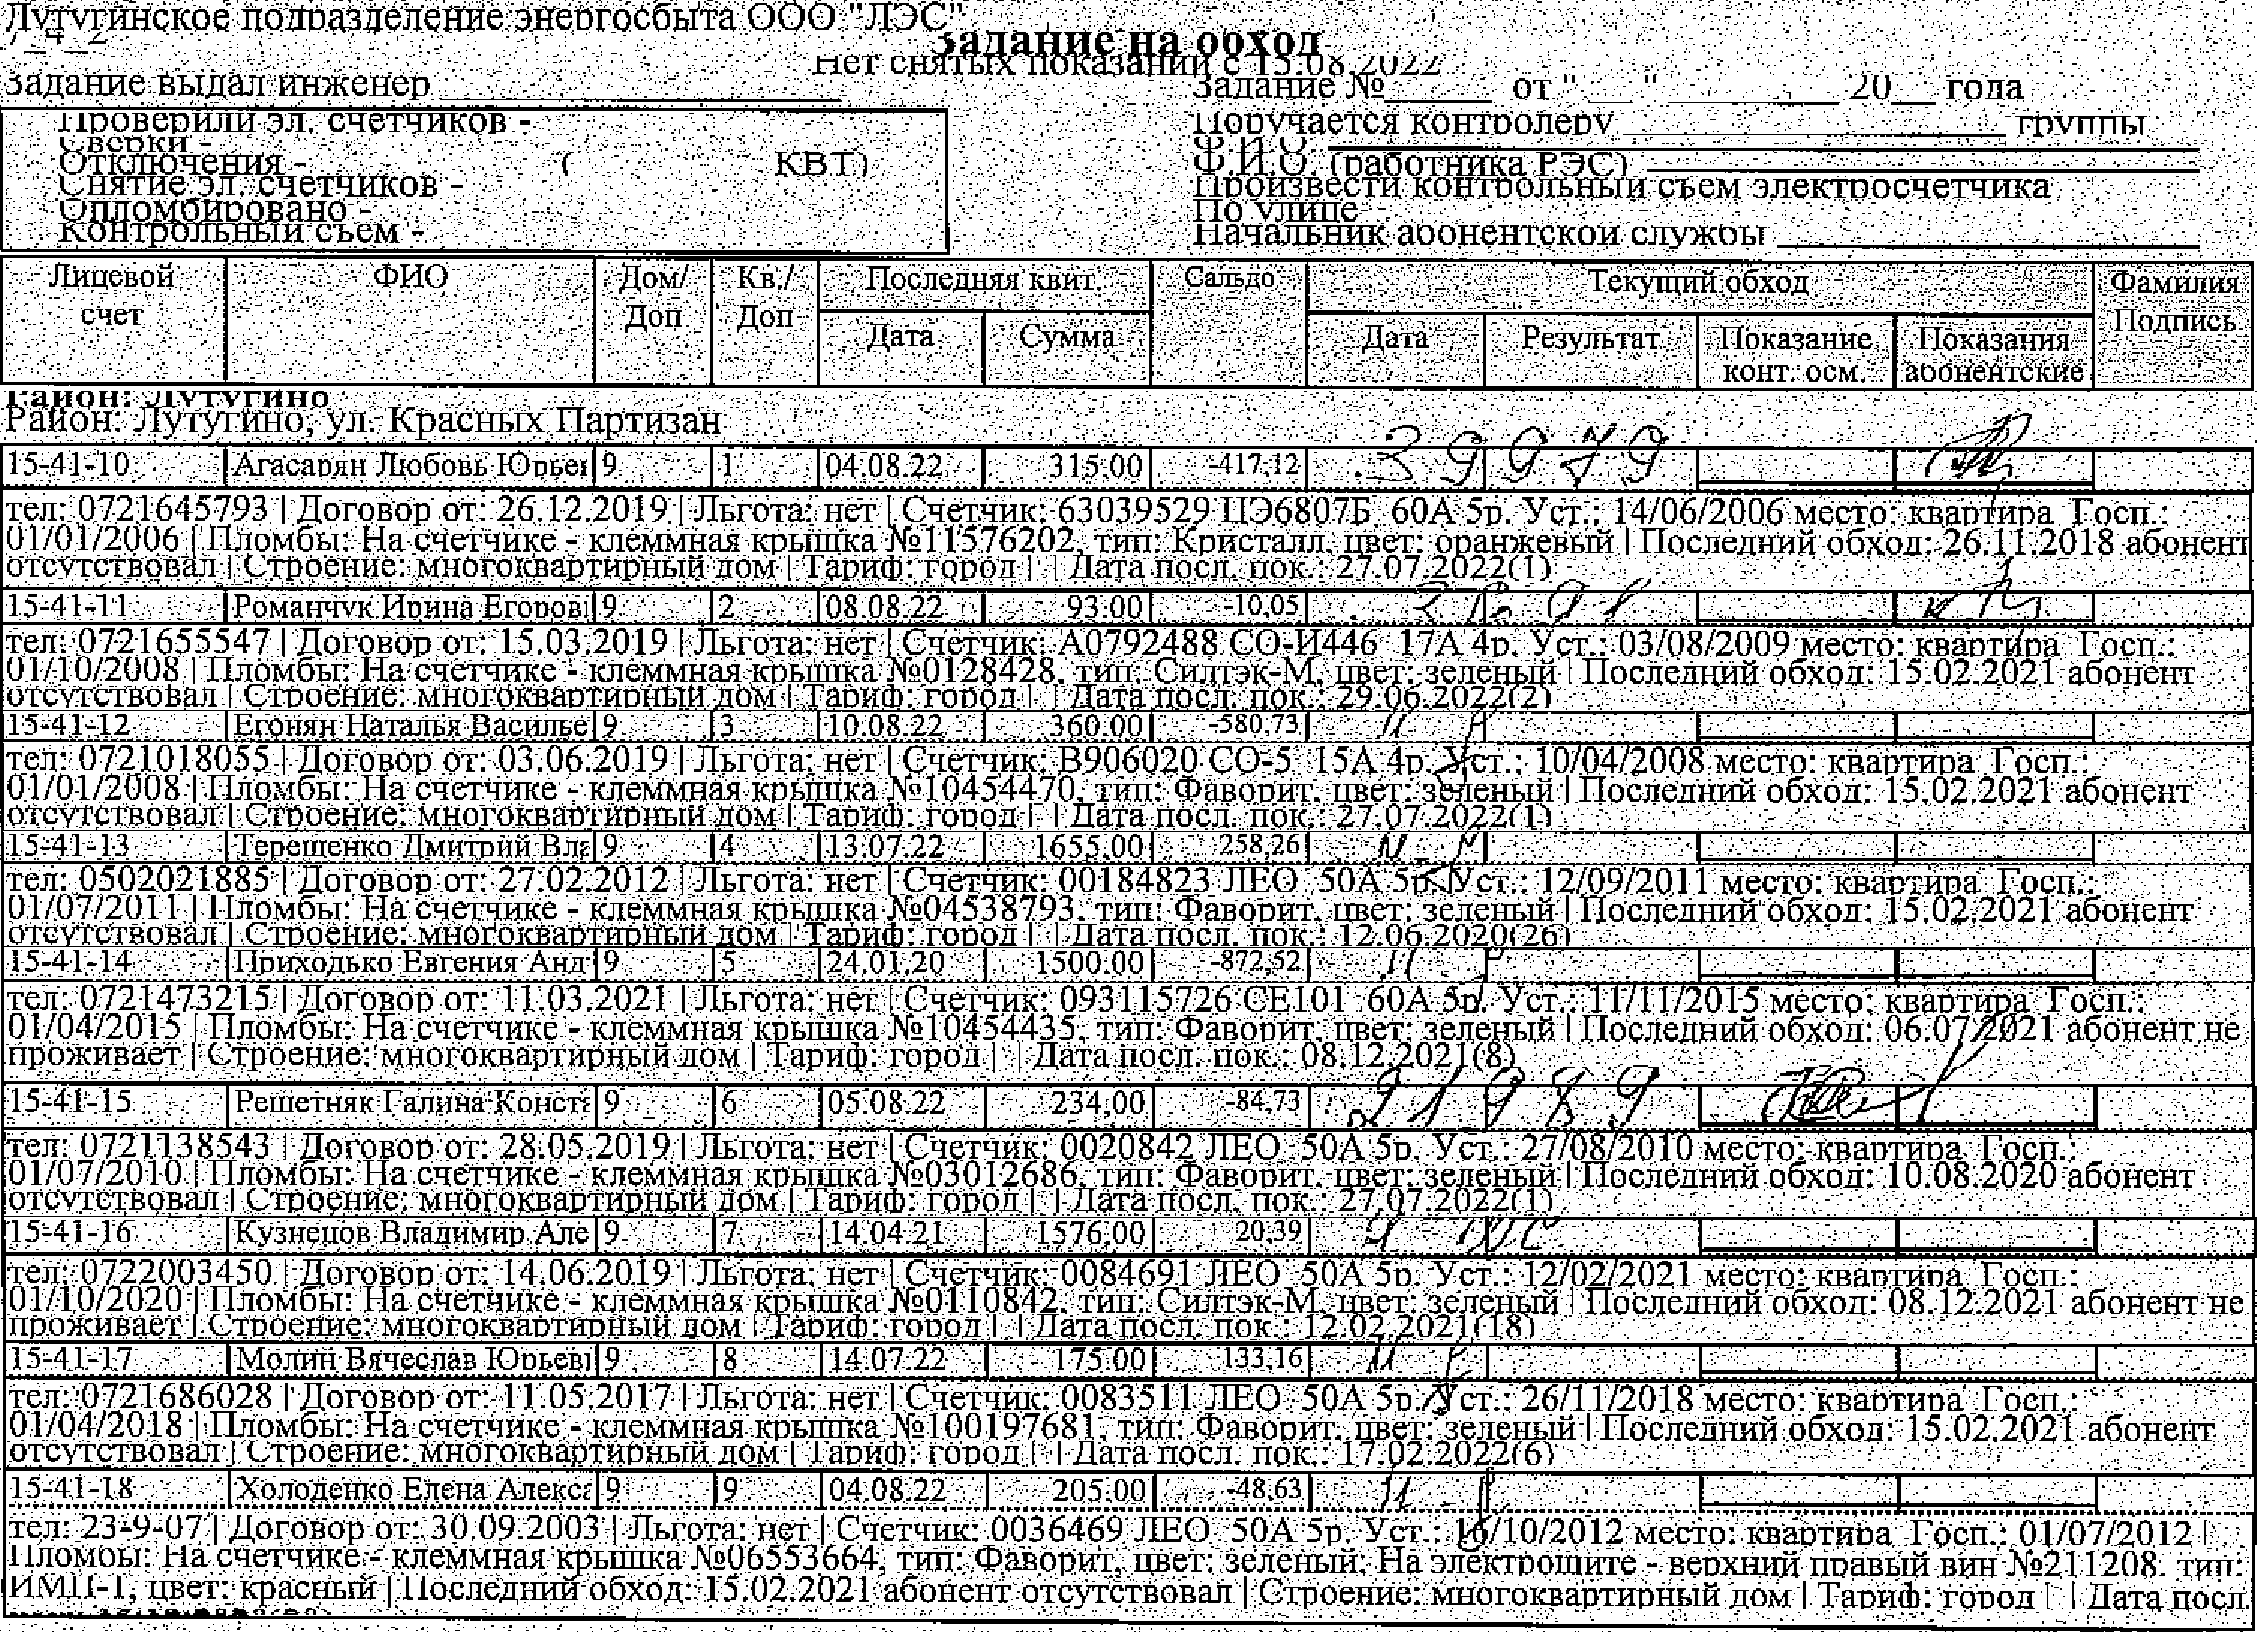 Лутугинское подразделение энергосбыта ООО "ЛЭС"
7_4_2
Задание на обход
Нет снятых показаний с 15.08.2022
Задание выдал инженер
Задание № от " " 20 года
Проверили эл. счетчиков -
Поручается контролеру группы
Сверки -
Ф.И.О.
Отключения - ( КВТ)
Ф.И.О. (работника РЭС)
Снятие эл. счетчиков -
Произвести контрольный съем электросчетчика
Опломбировано -
По улице
Контрольный съем -
Начальник абонентской службы
Лицевой счет ФИО Дом/ Доп Кв./ Доп Последняя квит. Сальдо Текущий обход Фамилия Подпись
Дата Сумма Дата Результат Показание конт. осм. Показания абонентские
Район: Лутугино
Район: Лутугино, ул. Красных Партизан
15-41-10 Агасарян Любовь Юрьев 9 1 04.08.22 315.00 -417,12 39979
тел: 0721645793 | Договор от: 26.12.2019 | Льгота: нет | Счетчик: 63039529 ЦЭ6807Б 60А 5р. Уст.: 14/06/2006 место: квартира Госп.:
01/01/2006 | Пломбы: На счетчике - клеммная крышка №11576202, тип: Кристалл, цвет: оранжевый | Последний обход: 26.11.2018 абонент
отсутствовал | Строение: многоквартирный дом | Тариф: город | | Дата посл. пок.: 27.07.2022(1)
15-41-11 Романчук Ирина Егоровн 9 2 08.08.22 93.00 -10,05
тел: 0721655547 | Договор от: 15.03.2019 | Льгота: нет | Счетчик: А0792488 СО-И446 17А 4р. Уст.: 03/08/2009 место: квартира Госп.:
01/10/2008 | Пломбы: На счетчике - клеммная крышка №0128428, тип: Силтэк-М, цвет: зеленый | Последний обход: 15.02.2021 абонент
отсутствовал | Строение: многоквартирный дом | Тариф: город | | Дата посл. пок.: 29.06.2022(2)
15-41-12 Егонян Наталья Василье 9 3 10.08.22 360.00 -580,73
тел: 0721018055 | Договор от: 03.06.2019 | Льгота: нет | Счетчик: В906020 СО-5 15А 4р. Уст.: 10/04/2008 место: квартира Госп.:
01/01/2008 | Пломбы: На счетчике - клеммная крышка №10454470, тип: Фаворит, цвет: зеленый | Последний обход: 15.02.2021 абонент
отсутствовал | Строение: многоквартирный дом | Тариф: город | | Дата посл. пок.: 27.07.2022(1)
15-41-13 Терещенко Дмитрий Вла 9 4 13.07.22 1655.00 258,26
тел: 0502021885 | Договор от: 27.02.2012 | Льгота: нет | Счетчик: 00184823 ЛЕО 50А 5р. Уст.: 12/09/2011 место: квартира Госп.:
01/07/2011 | Пломбы: На счетчике - клеммная крышка №04538793, тип: Фаворит, цвет: зеленый | Последний обход: 15.02.2021 абонент
отсутствовал | Строение: многоквартирный дом | Тариф: город | | Дата посл. пок.: 12.06.2020(26)
15-41-14 Приходько Евгения Анд 9 5 24.01.20 1500.00 -872,52
тел: 0721473215 | Договор от: 11.03.2021 | Льгота: нет | Счетчик: 093115726 СЕ101 60А 5р. Уст.: 11/11/2015 место: квартира Госп.:
01/04/2015 | Пломбы: На счетчике - клеммная крышка №10454435, тип: Фаворит, цвет: зеленый | Последний обход: 06.07.2021 абонент не
проживает | Строение: многоквартирный дом | Тариф: город | | Дата посл. пок.: 08.12.2021(8)
15-41-15 Решетняк Галина Конста 9 6 05.08.22 234.00 -84,73 21989
тел: 0721138543 | Договор от: 28.05.2019 | Льгота: нет | Счетчик: 0020842 ЛЕО 50А 5р. Уст.: 27/08/2010 место: квартира Госп.:
01/07/2010 | Пломбы: На счетчике - клеммная крышка №03012686, тип: Фаворит, цвет: зеленый | Последний обход: 10.08.2020 абонент
отсутствовал | Строение: многоквартирный дом | Тариф: город | | Дата посл. пок.: 27.07.2022(1)
15-41-16 Кузнецов Владимир Але 9 7 14.04.21 1576.00 20,39
тел: 0722003450 | Договор от: 14.06.2019 | Льгота: нет | Счетчик: 0084691 ЛЕО 50А 5р. Уст.: 12/02/2021 место: квартира Госп.:
01/10/2020 | Пломбы: На счетчике - клеммная крышка №0110842, тип: Силтэк-М, цвет: зеленый | Последний обход: 08.12.2021 абонент не
проживает | Строение: многоквартирный дом | Тариф: город | | Дата посл. пок.: 12.02.2021(18)
15-41-17 Молин Вячеслав Юрьеви 9 8 14.07.22 175.00 133,16
тел: 0721686028 | Договор от: 11.05.2017 | Льгота: нет | Счетчик: 0083511 ЛЕО 50А 5р. Уст.: 26/11/2018 место: квартира Госп.:
01/04/2018 | Пломбы: На счетчике - клеммная крышка №100197681, тип: Фаворит, цвет: зеленый | Последний обход: 15.02.2021 абонент
отсутствовал | Строение: многоквартирный дом | Тариф: город | | Дата посл. пок.: 17.02.2022(6)
15-41-18 Холоденко Елена Алекса 9 9 04.08.22 205.00 -48,63
тел: 23-9-07 | Договор от: 30.09.2003 | Льгота: нет | Счетчик: 0036469 ЛЕО 50А 5р. Уст.: 16/10/2012 место: квартира Госп.: 01/07/2012 |
Пломбы: На счетчике - клеммная крышка №06553664, тип: Фаворит, цвет: зеленый, На электрощите - верхний правый вин №211208, тип:
ИМП-1, цвет: красный | Последний обход: 15.02.2021 абонент отсутствовал | Строение: многоквартирный дом | Тариф: город | | Дата посл.